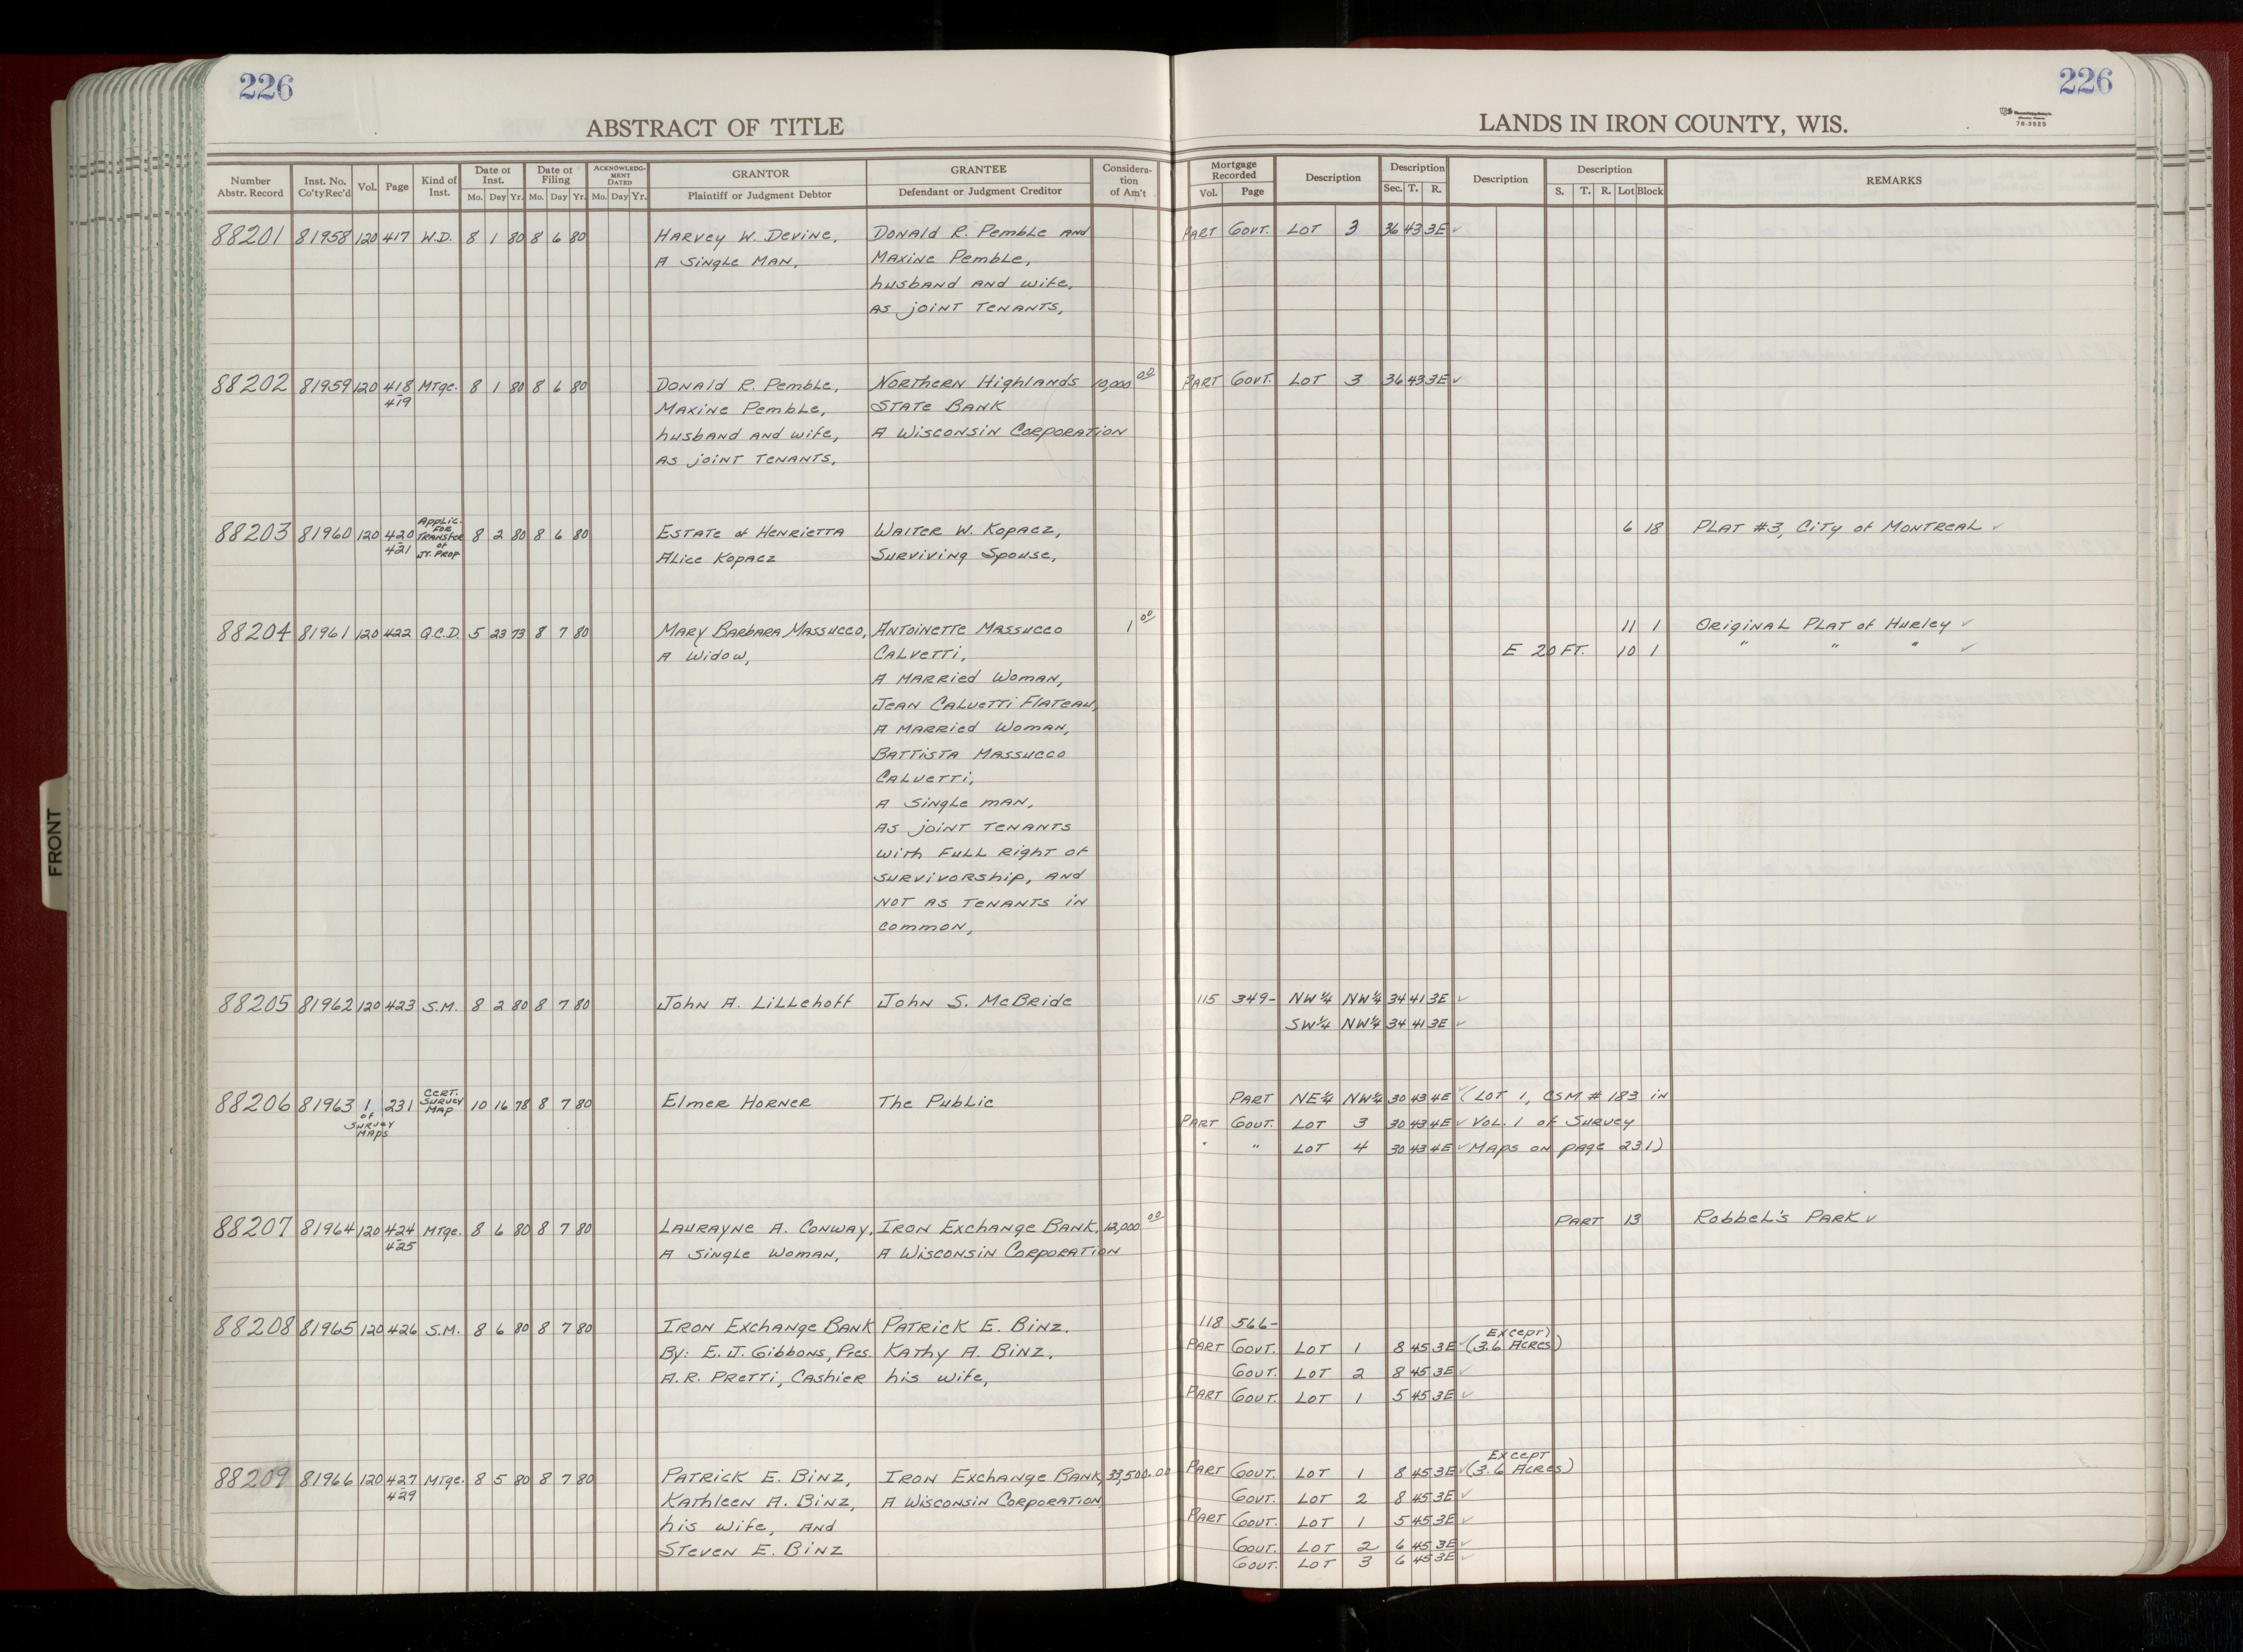 226
226
ABSTRACT OF TITLE
LANDS IN IRON COUNTY, WIS.
78-3525
Number Abstr. Record Inst. No. Co'ty Rec'd Vol. Page Kind of Inst. Date of Inst. Mo. Day Yr. Date of Filing Mo. Day Yr. ACKNOWLEDGMENT DATED Mo. Day Yr. GRANTOR Plaintiff or Judgment Debtor GRANTEE Defendant or Judgment Creditor Consideration of Am't
Mortgage Recorded Vol. Page Description Description Sec. T. R. Description Description S. T. R. Lot Block REMARKS
88201 81958 120 417 W.D. 8 1 80 8 6 80 Harvey W. Devine, Donald R. Pemble and PART GOVT. LOT 3 36 43 3E ✓
A Single Man, Maxine Pemble,
husband and wife,
as joint tenants,
88202 81959 120 418 Mtge. 8 1 80 8 6 80 Donald R. Pemble, Northern Highlands 10,000 00 PART GOVT. LOT 3 36 43 3E ✓
- 419 Maxine Pemble, State Bank
husband and wife, A Wisconsin Corporation
as joint tenants,
88203 81960 120 420 - 421 Applic. for Transfer of Jt. Prop 8 2 80 8 6 80 Estate of Henrietta Walter W. Kopacz, 6 18 PLAT #3, City of Montreal ✓
Alice Kopacz Surviving Spouse,
88204 81961 120 422 Q.C.D. 5 23 73 8 7 80 Mary Barbara Massucco, Antoinette Massucco 1 00 11 1 Original Plat of Hurley ✓
A Widow, Calvetti, E 20 FT. 10 1 " " " ✓
A Married Woman,
Jean Calvetti Flateau,
A Married Woman,
Battista Massucco
Calvetti,
A Single man,
as joint tenants
with full right of
survivorship, and
not as tenants in
common,
88205 81962 120 423 S.M. 8 2 80 8 7 80 John A. Lillehoff John S. McBride 115 349- NW¼ NW¼ 34 41 3E ✓
SW¼ NW¼ 34 41 3E ✓
88206 81963 1 of Survey Maps 231 Cert. Survey Map 10 16 78 8 7 80 Elmer Horner The Public PART NE¼ NW¼ 30 43 4E ✓ (LOT 1, CSM # 183 in
PART GOVT. LOT 3 30 43 4E ✓ Vol. 1 of Survey
" " LOT 4 30 43 4E ✓ Maps on page 231)
88207 81964 120 424 Mtge. 8 6 80 8 7 80 Laurayne A. Conway, Iron Exchange Bank, 12,000 00 PART 13 Robbel's Park ✓
- 425 A Single Woman, A Wisconsin Corporation
88208 81965 120 426 S.M. 8 6 80 8 7 80 Iron Exchange Bank Patrick E. Binz. 118 566-
By: E. J. Gibbons, Pres. Kathy A. Binz, PART GOVT. LOT 1 8 45 3E ✓ Except) (3.6 Acres)
A.R. Pretti, Cashier his wife, GOVT. LOT 2 8 45 3E ✓
PART GOVT. LOT 1 5 45 3E ✓
88209 81966 120 427 Mtge. 8 5 80 8 7 80 Patrick E. Binz, Iron Exchange Bank, 33,500.00 PART GOVT. LOT 1 8 45 3E ✓ Except (3.6 Acres)
- 429 Kathleen A. Binz, A Wisconsin Corporation GOVT. LOT 2 8 45 3E ✓
his wife, and PART GOVT. LOT 1 5 45 3E ✓
Steven E. Binz GOVT. LOT 2 6 45 3E ✓
GOVT. LOT 3 6 45 3E ✓
FRONT